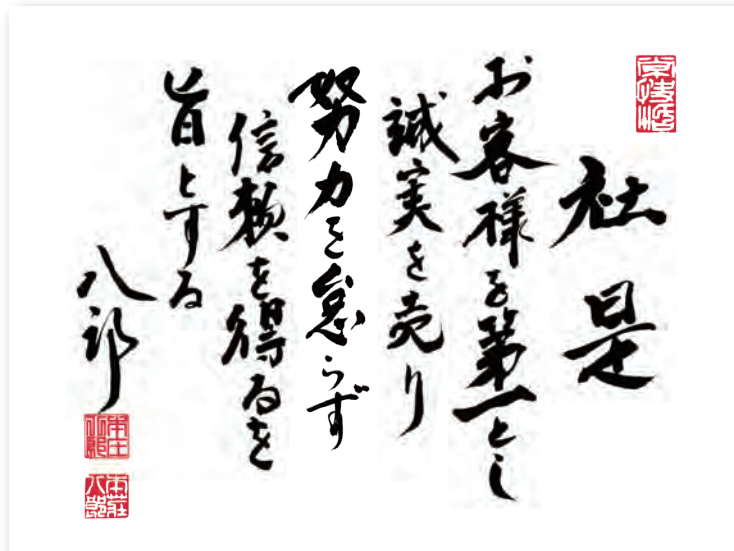 社是
お客様を第一とし
誠実を売り
努力を怠らず
信頼を得るを
旨とする
八郎
本荘
八郎